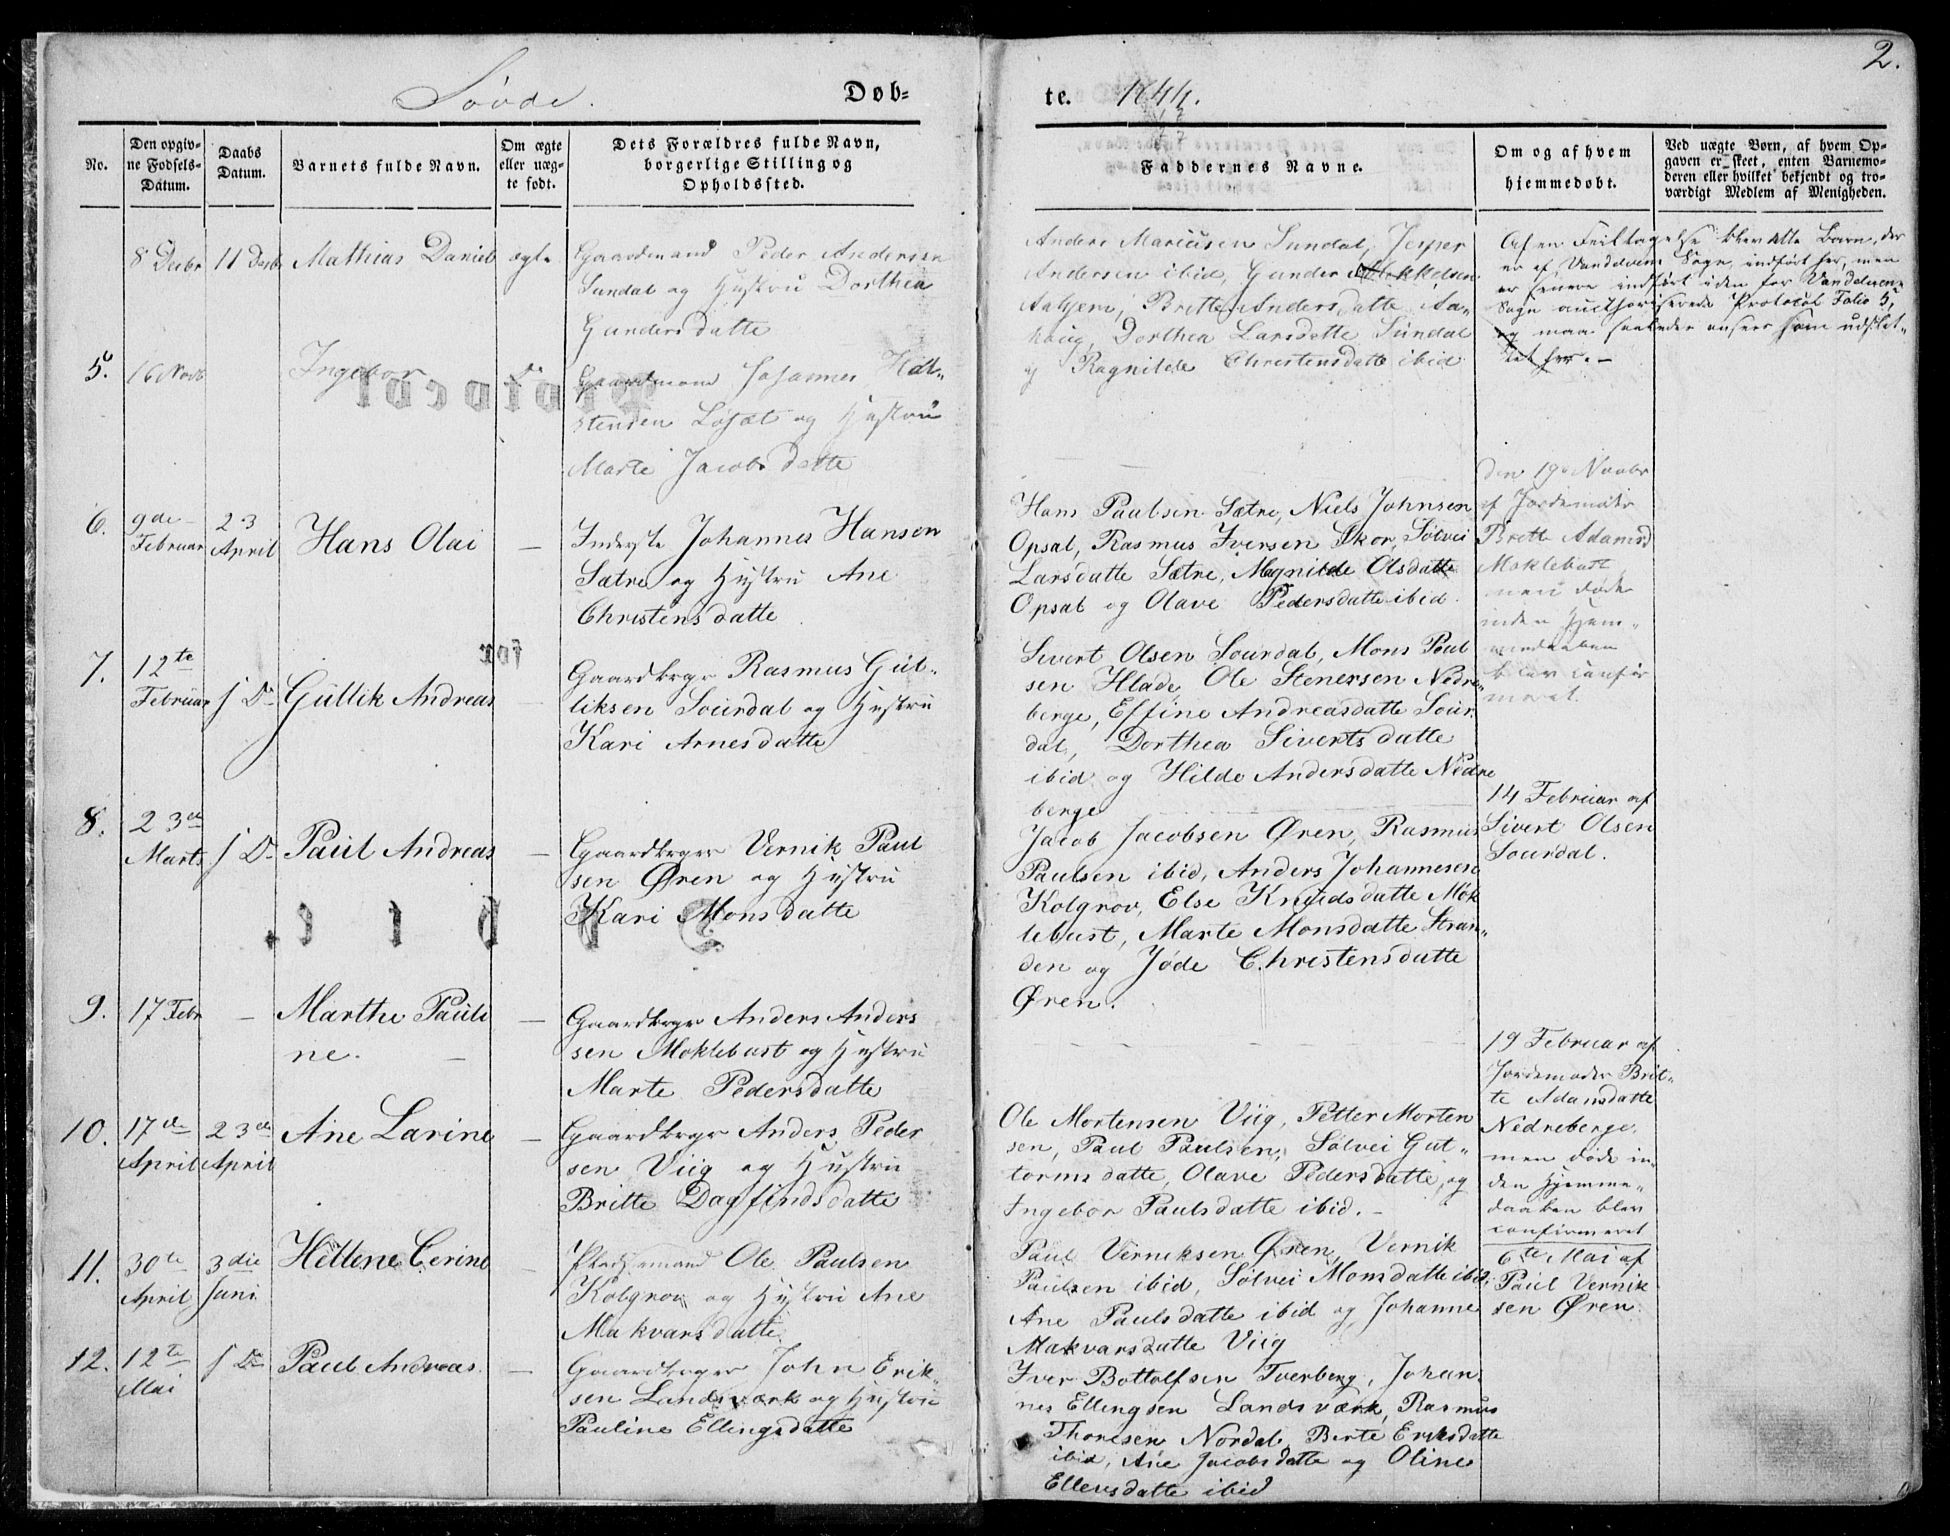 Søvde.
Døb-
te. 1844.
2.
No.
Den opgiv-
ne Fødsels-
Datum.
Daabs
Datum.
Barnets fulde Navn.
Om ægte
eller uæg-
te født.
Dets Forældres fulde Navn,
borgerlige Stilling og
Opholdssted.
Faddernes Navne.
Om og af hvem
hjemmedøbt.
Ved uægte Børn, af hvem Op-
gaven er skeet, enten Barnemo-
deren eller hvilket bekjendt og tro-
værdigt Medlem af Menigheden.
8 Decbr 11 Decbr Mathias Daniel ægte
Gaardmand Peder Andersen
Sundal og Hustru Dorthea
Gundersdatte
Anders Mariusen Sundal, Jesper
Andersen ibid, Gunder
Brette Andersdatte Aa-
haug, Dorthea Larsdatte Sundal
og Ragnilde Christensdatte ibid
Af en Feiltagelse blev dette Barn, der
er af Vanddvens Sogn, indført her, men
er senere indført i den for Vanddvens
Sogn aucthoriserede Protokol Folio 5,
og maa saaledes ansees som udslet-
tet her. -
5. 16 Novb Ingebor do
Gaardmand Johannes Hal-
stensen Løset og Hustru
Marte Jacobsdatte
den 19 Novbr
af Jordemoder
Brette Adamsd
Moklebust
men døde
inden Hjem-
medaaben
blev confir
meret.
6. 9de Februar 23 April Hans Olai —
Inderste Johannes Hansen
Sætre og Hustru Ane
Christensdatte
Hans Paulsen Sætre, Niels Johnsen
Opsal, Rasmus Iversen Skor, Sølvei
Larsdatte Sætre, Magnilde Olsdatte
Opsal og Olave Pedersdatte ibid.
7. 12te Februar s D. Gullik Andreas —
Gaardbrgr Rasmus Gul-
liksen Sourdal og Hustru
Kari Arnesdatte
Sivert Olsen Sourdal, Mons Paul
sen Hlade, Ole Stenersen Nedre-
berge, Effine Andreasdatte Sour
dal, Dorthea Sivertsdatte
ibid og Hilde Andersdatte Nedre
berge
14 Februar af
Sivert Olsen
Sourdal.
8. 23de Marts s D. Paul Andreas —
Gaardbrger Vernik Paul
sen Øren og Hustru
Kari Monsdatte
Jacob Jacobsen Øren, Rasmus
Paulsen ibid, Anders Johannesen
Kolgrov, Else Knudsdatte Møk
lebust, Marte Monsdatte Stran-
den og Jøde Christensdatte
Øren.
9. 17 Febr — Marthe Pauli
ne. —
Gaardbrgr Anders Anders
sen Moklebust og Hustru
Marte Pedersdatte
19 Februar af
Jordemoder Brit-
te Adamsdatte
Nedreberge,
men døde in-
den Hjemme-
daaben blev
confirmeret
10. 17de April 23de April Ane Larine —
Gaardbrgr Anders Peder
sen Viig og Hustru
Britte Dagfindsdatte
Ole Mortensen Viig, Petter Morten
sen, Paul Paulsen, Sølvei Gut-
tormsdatte, Olave Pedersdatte, og
Ingebor Paulsdatte ibid. -
11. 30te April 3die Juni Hellene Cerine —
Pladsemand Ole Paulsen
Kolgrov og Hustru Ane
Makvarsdatte
Paul Verniksen Øren, Vernik
Paulsen ibid, Sølvei Monsdatte ibid,
Ane Paulsdatte ibid og Johanne
Makvarsdatte Viig
6te Mai af
Paul Vernik
sen Øren.
12. 12te Mai s D. Paul Andreas. —
Gaardbrger John Erik-
sen Landsværk og Hustru
Pauline Ellingsdatte
Iver Bottolfsen Tverberg, Johan
nes Ellingsen Landsværk, Rasmus
Thoresen Nordal, Berte Eriksdatte
ibid, Ane Jacobsdatte og Oline
Ellensdatte ibid